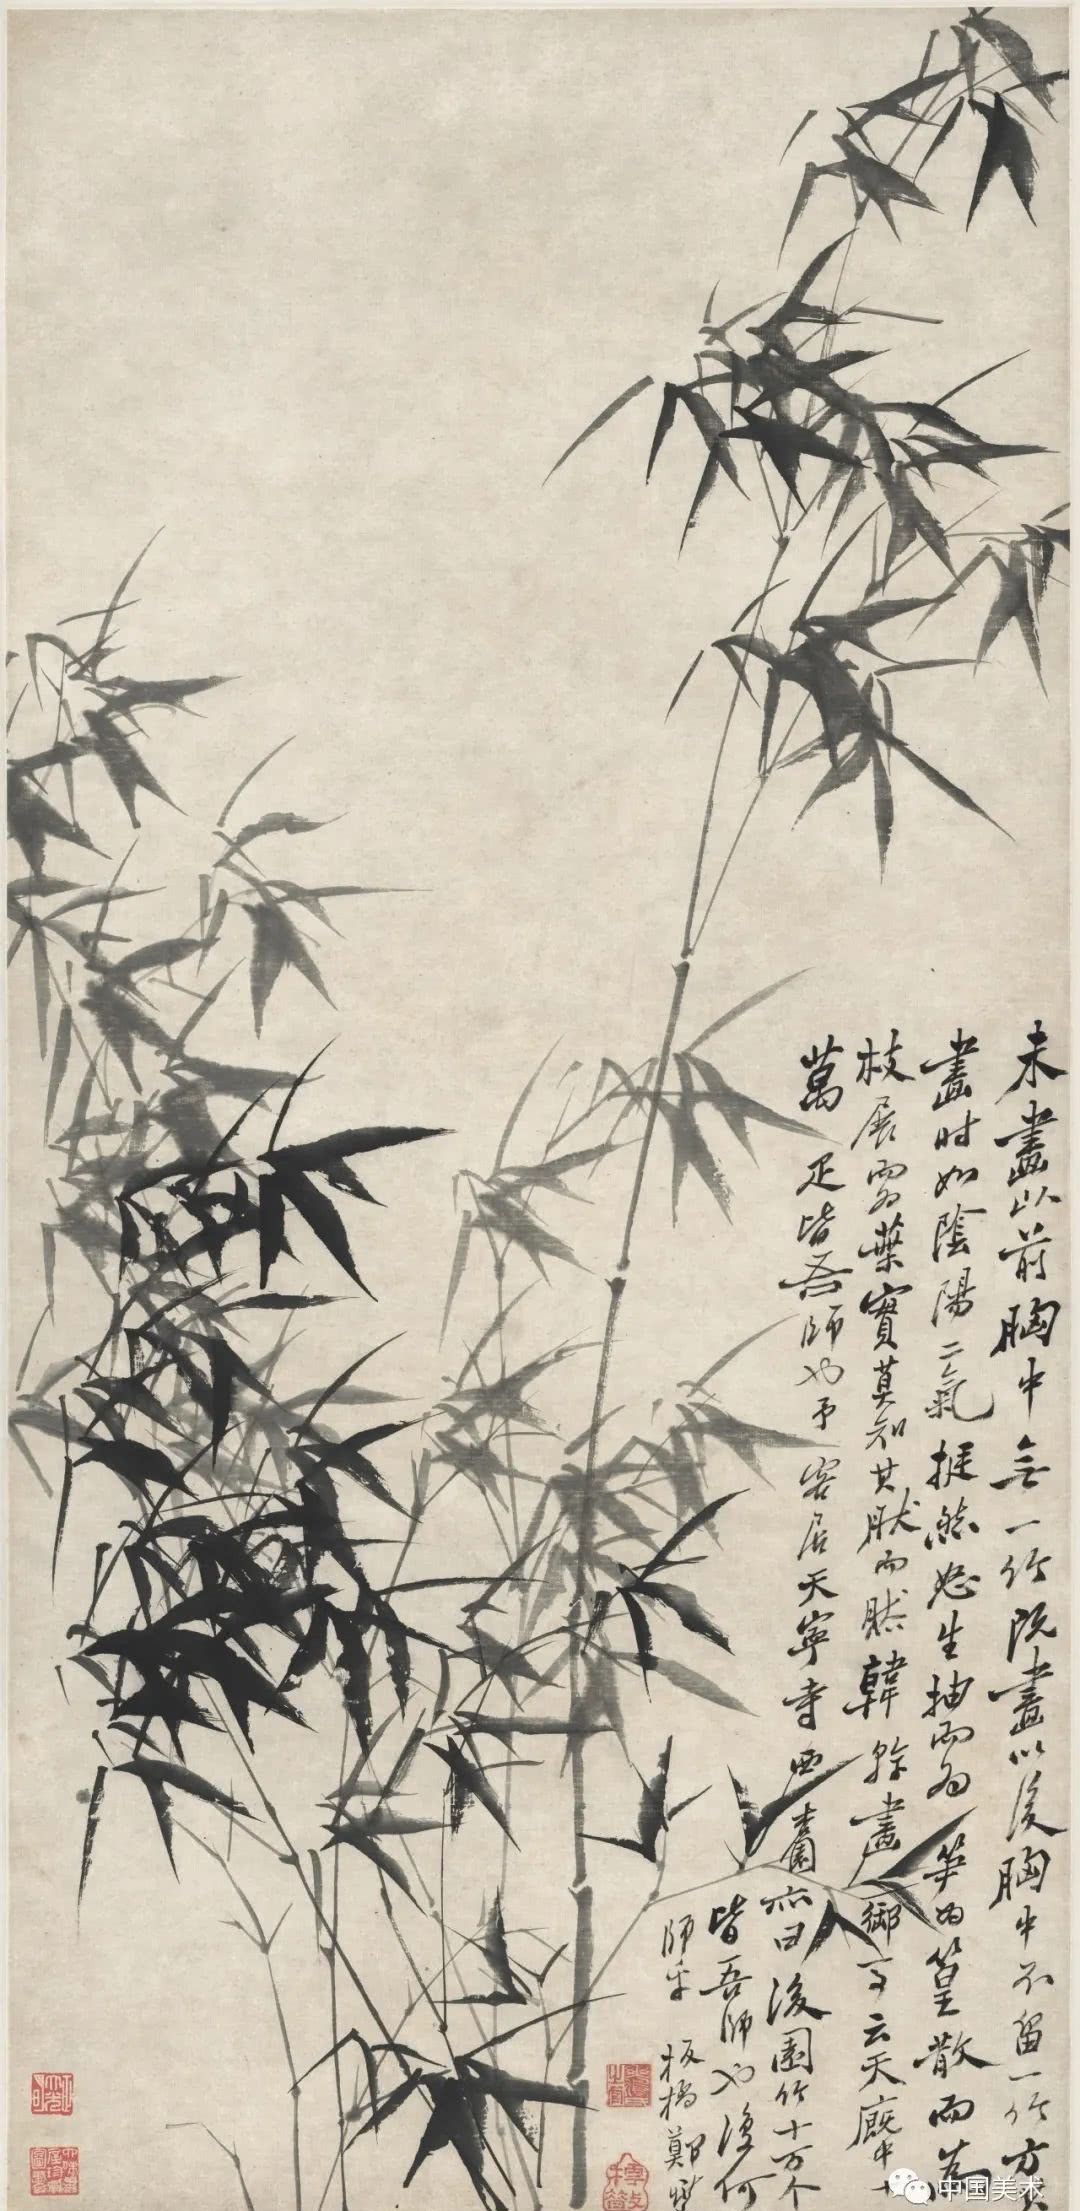 未畫以前胸中無一竹既畫以後胸中不留一竹方其
畫時如陰陽二氣挺然怒生抽而為笋為篁散而為
枝展而為葉實莫知其然而然韓幹畫御馬云天廐中十
萬疋皆吾師也予客居天寧寺西杏園亦曰後園竹十万个
皆吾師也復何
師乎 板橋鄭燮
中国美术